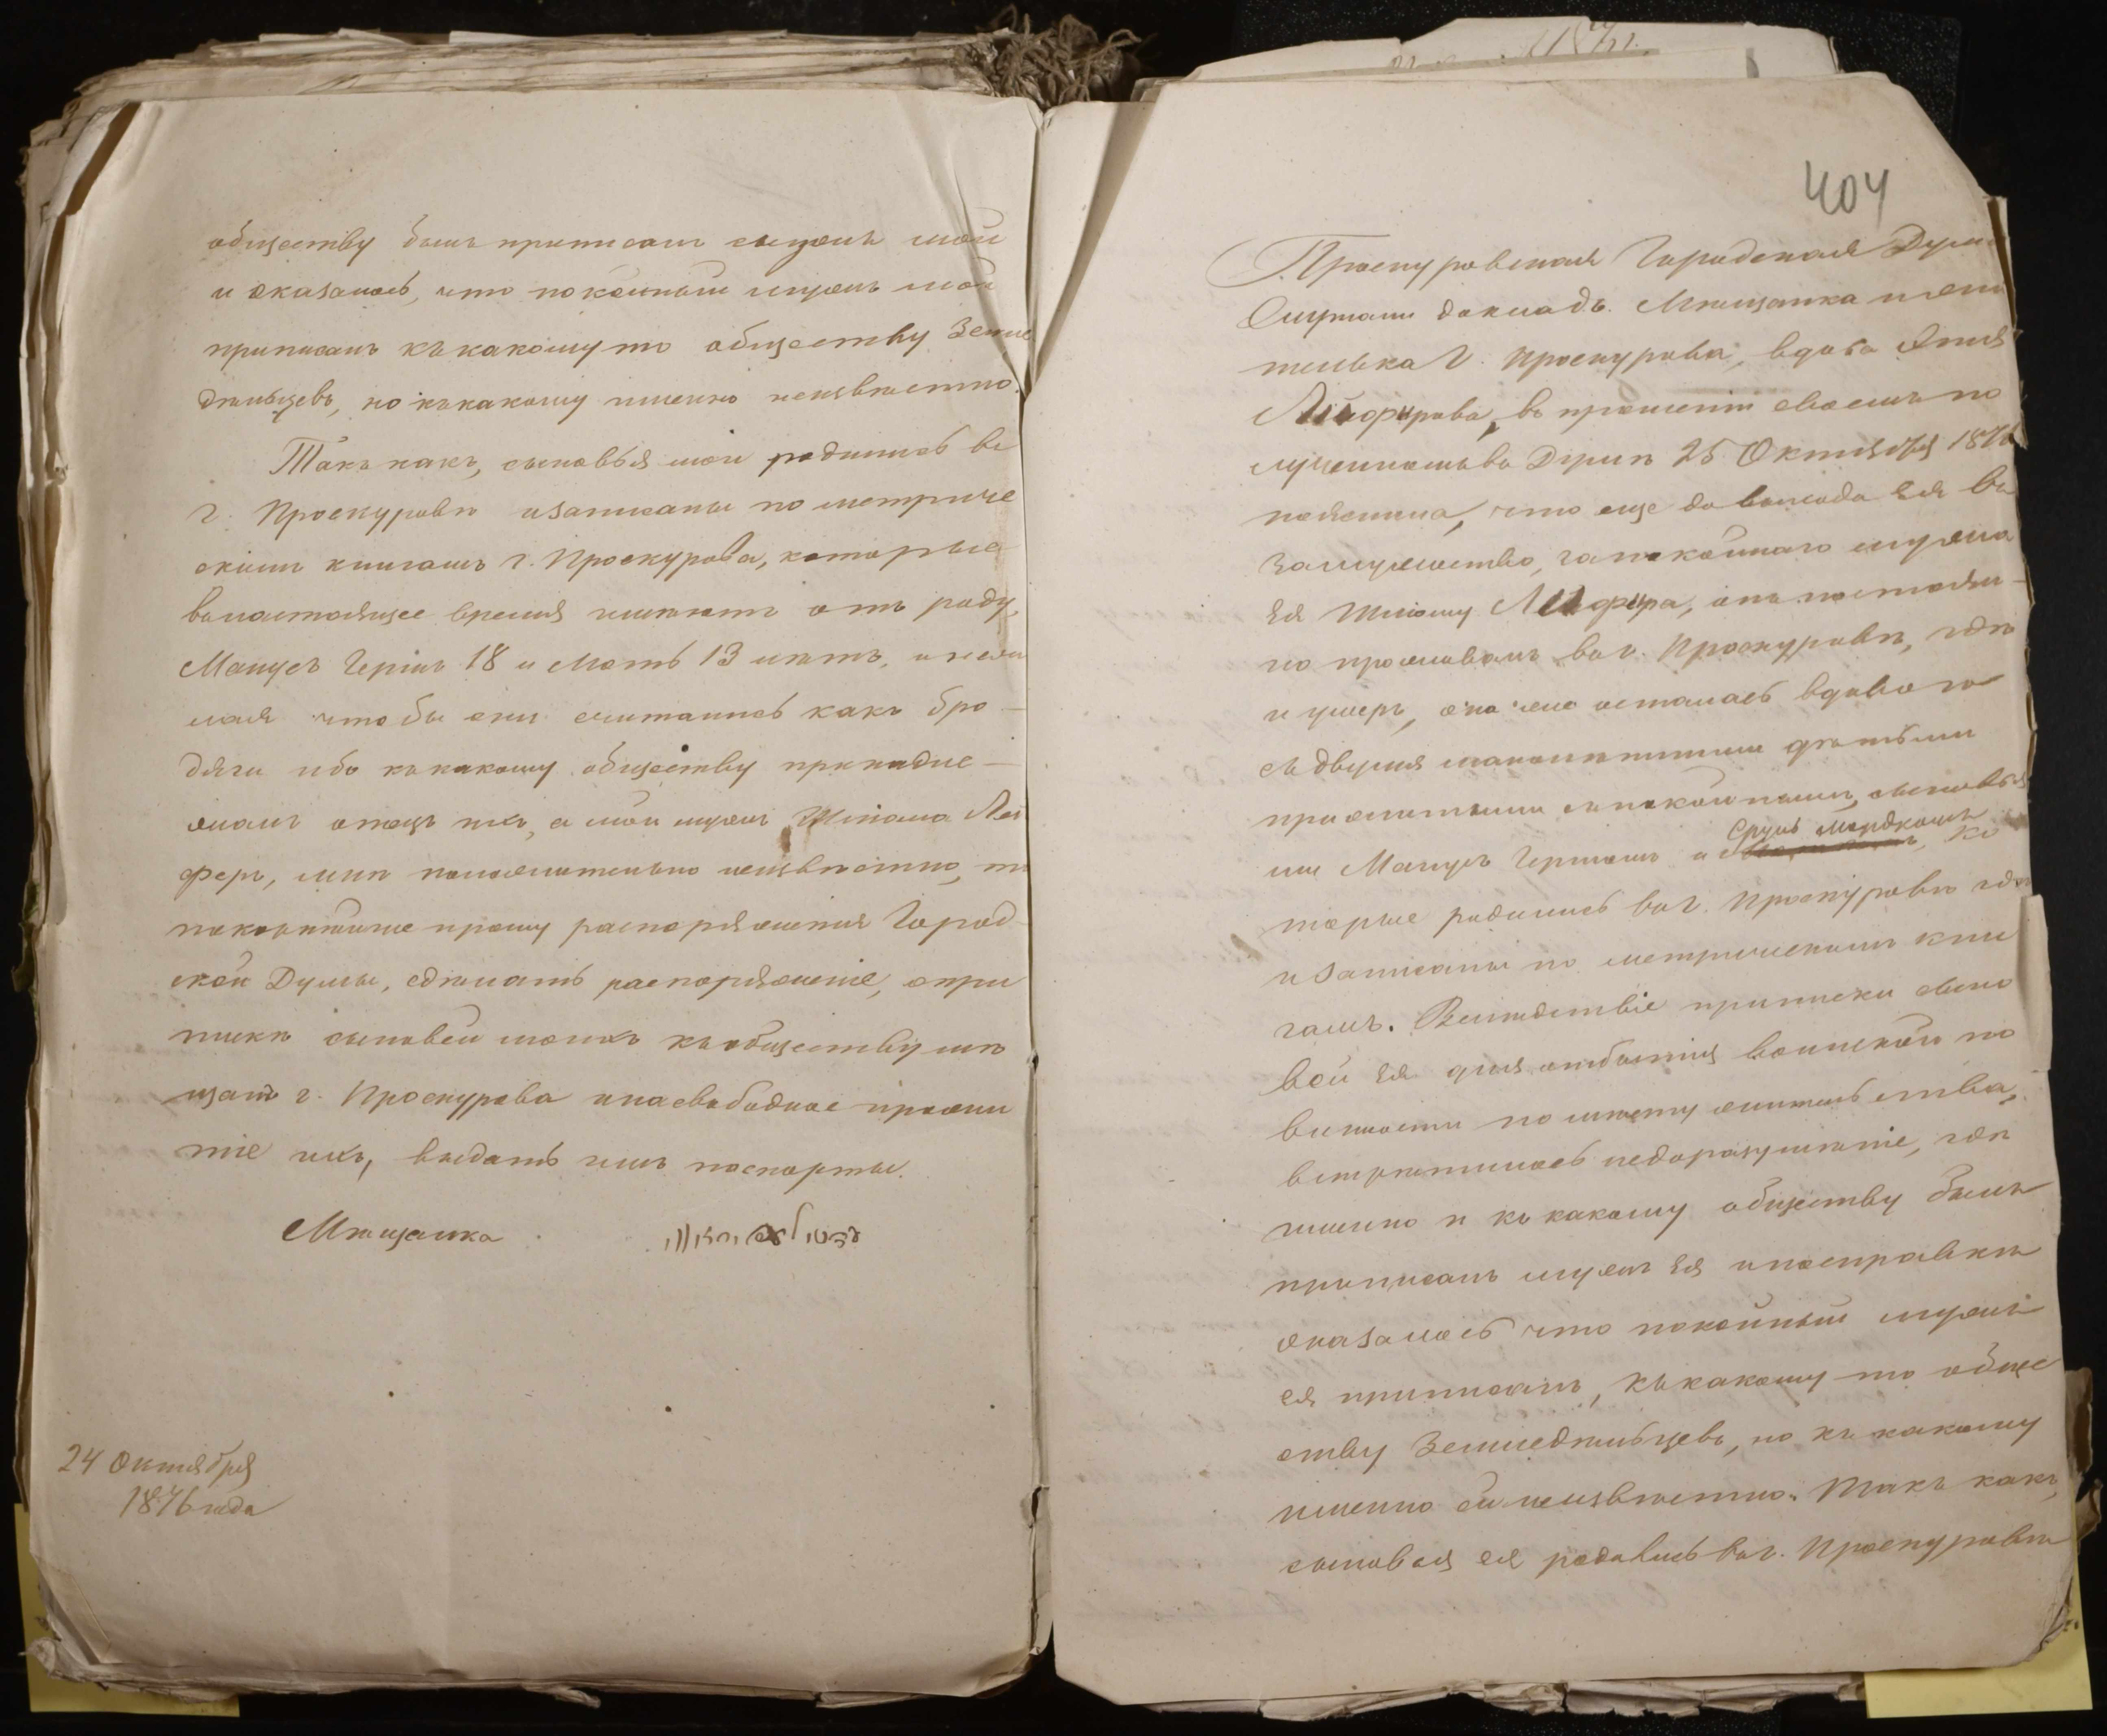 обществу былъ приписанъ мужъ мой
и оказалось, что покойный мужъ мой
приписанъ къ какому то обществу Земле
дѣльцевъ, но къ какому именно неизвѣстно.
Такъ какъ, сыновья мои родились въ
г. Проскуровѣ и записаны по метриче
скимъ книгамъ г. Проскурова, которые
въ настоящее время имѣютъ отъ роду,
Манусъ Гершъ 18 и Мотъ 13 лѣтъ, и не же
лая чтобы они считались какъ бро-
дяги ибо къ какому обществу принадле-
жалъ отецъ ихъ, а мой мужъ Шліома Лей
феръ, мнѣ положительно неизвѣстно, то
покорнѣйше прошу распоряженія Город-
ской Думы, сдѣлать распоряженіе, о при
пискѣ сыновей моихъ къ обществу мѣ
щанъ г. Проскурова и на свободное прожи
тіе ихъ, выдать имъ паспорты.
Мѣщанка
24 Октября
1876 года
404
Проскуровская Городская Дума
Слушали докладъ. Мѣщанка жи
телька г. Проскурова, вдова
Лейферова, въ прошеніи своемъ по
лученномъ въ Думѣ 25 Октября 1876
пояснила, что еще до выхода ея въ
замужество, за покойнаго мужа
ея Шліому Лейфера, онъ постоян-
но проживалъ въ г. Проскуровѣ, гдѣ
и умеръ, она же осталась вдовою
съ двумя малолѣтними дѣтьми
прижитыми съ покойнымъ, сыновья
ми Манусъ Гершомъ и Сруль Мордкомъ, ко
торые родились въ г. Проскуровѣ гдѣ
и записаны по метрическимъ кни
гамъ. Вслѣдствіе приписки сыно
вей ея для отбытія воинской по
винности по мѣсту жительства,
встрѣтилось недоразумѣніе, гдѣ
именно и къ какому обществу былъ
приписанъ мужъ ея и по справкѣ
оказалось что покойный мужъ
ея приписанъ, къ какому-то обще
ству Земледѣльцевъ, но къ какому
именно ей неизвѣстно. Такъ какъ,
сыновья ея родились въ г. Проскуровѣ